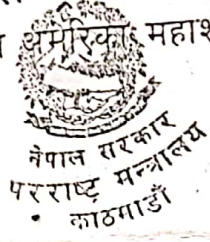 अमेरिका महाश
नेपाल सरकार
परराष्ट्र मन्त्रालय
काठमाडौँ